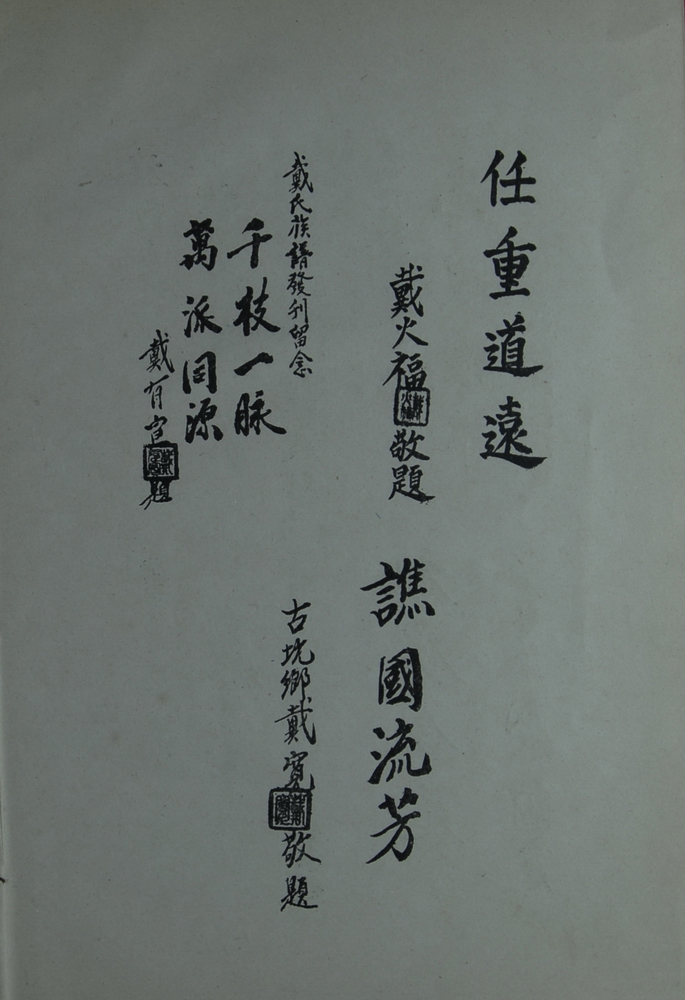 任重道遠
戴火福敬題
戴氏族譜發刊留念
千枝一脉
萬派同源
戴有官題
譙國流芳
古坑鄉戴寬敬題